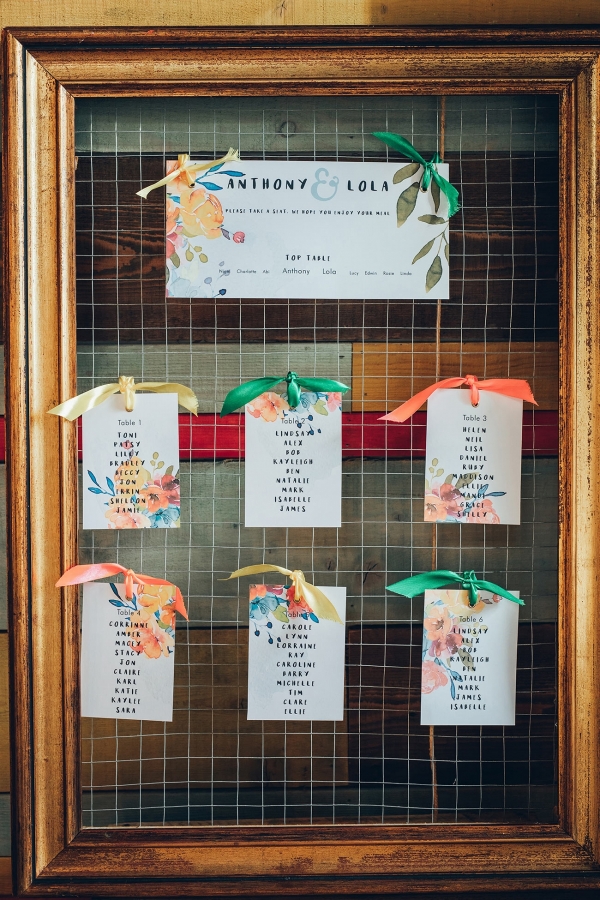 ANTHONY & LOLA
PLEASE TAKE A SEAT, WE HOPE YOU ENJOY YOUR MEAL
TOP TABLE
Charlotte Abi Anthony Lola Lucy Edwin Rosie Linda
Table 1
TONI
PATSY
LILLY
BRADLEY
BECCY
JON
ERRIN
SHELDON
JAMIE
Table 2
LINDSAY
ALEX
BOB
KAYLEIGH
BEN
NATALIE
MARK
ISABELLE
JAMES
Table 3
HELEN
NEIL
LISA
DANIEL
RUBY
MADDISON
ELLIE
MANDI
GRACE
SHELLY
Table 4
CORRINNE
AMBER
MACEY
STACY
JON
CLAIRE
KARL
KATIE
KAYLEE
SARA
Table
CAROLE
LYNN
LORRAINE
KAY
CAROLINE
BARRY
MICHELLE
TIM
CLARE
ELLIE
Table 6
LINDSAY
ALEX
BOB
KAYLEIGH
BEN
NATALIE
MARK
JAMES
ISABELLE